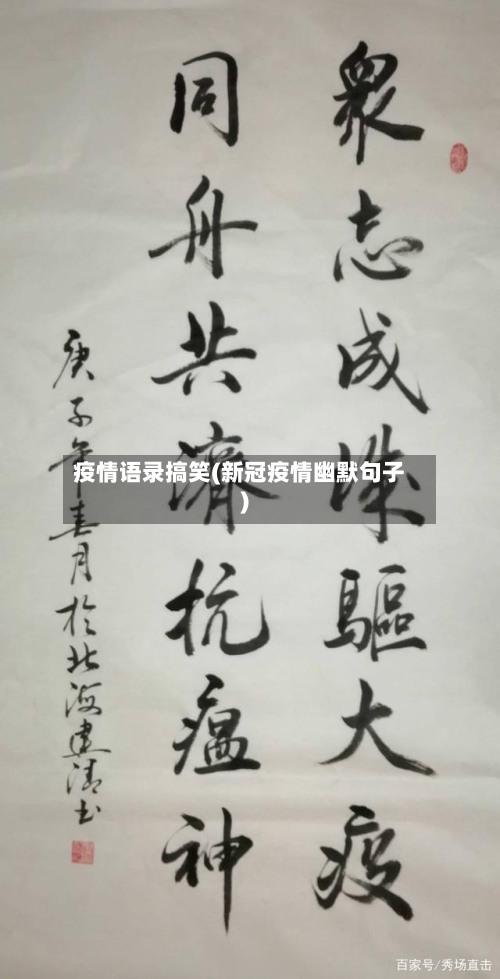 眾志成城驅大疫
同舟共濟抗瘟神
庚子年春月於北海建清书
疫情语录搞笑(新冠疫情幽默句子
)
百家号/秀场直击